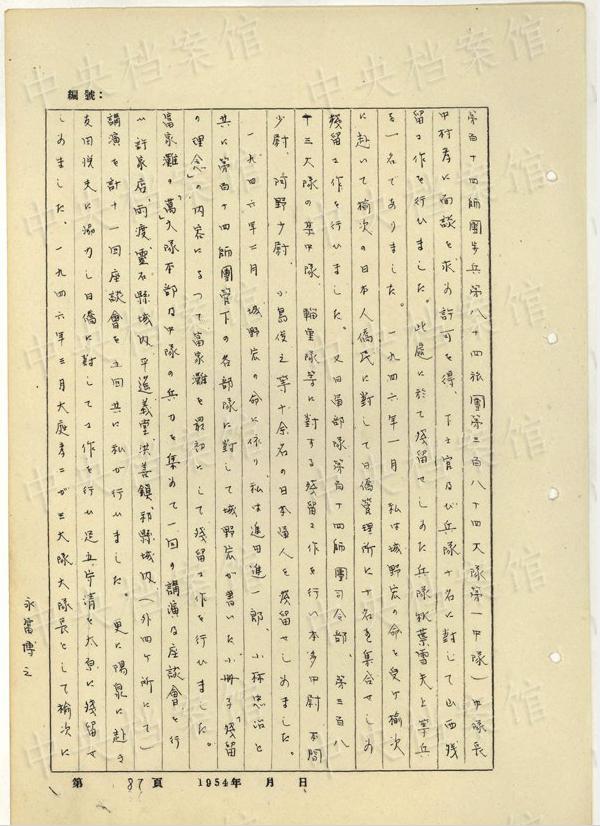 編號：
第百十四師團歩兵第八十四旅團第三百八十四大隊第一中隊）中隊長
中村孝に面談を求め許可を得、下士官及び兵隊十名に対して山西残
留工作を行ひました。此處に於て残留せしめた兵隊秋葉雪夫上等兵
を一名でありました。一九四六年一月 私は城野宏の命を受け榆次
に赴いて榆次の日本人僑民に対して日僑管理所に十名を集合せしめ
残留工作を行いました。又日留部隊第百十四師團司令部、第三百八
十三大隊の集中隊 輜重隊等に對する残留工作を行い本多中尉 本間
少尉、河野少尉、小島俊之等十余名の日本軍人を残留せしめました。
一九四六年二月 城野宏の命に依り 私は進田進一郎、小林忠治と
共に第百十四師團管下の各部隊に対して城野宏が書いた小冊子「残留
の理念」の内容によつて富家灘を最初にして残留工作を行いました。
富家灘の「萬」大隊本部及中隊の兵力を集めて一回の講演及座談會を行
い許家店、両渡靈石縣城内、平遥義堂、洪善鎮、祁縣城内（外四ヶ所にて）
講演を計十一回座談會を五回共に私が行いました。更に陽泉に赴き
友田悦夫に協力し日僑に対して工作を行い足立岸清を太原に残留せ
しめました。一九四六年三月大庭孝二が三大隊大隊長として榆次に
永富博之
第 87 頁 1954年 月 日
中央档案馆